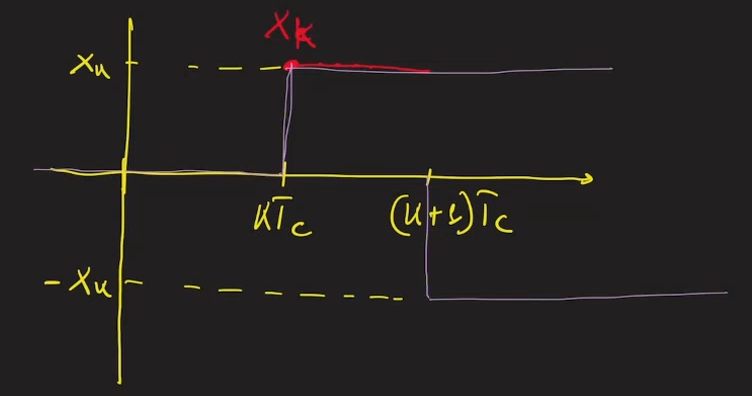 X_K
X_K
KT_C (K+1)T_C
-X_K